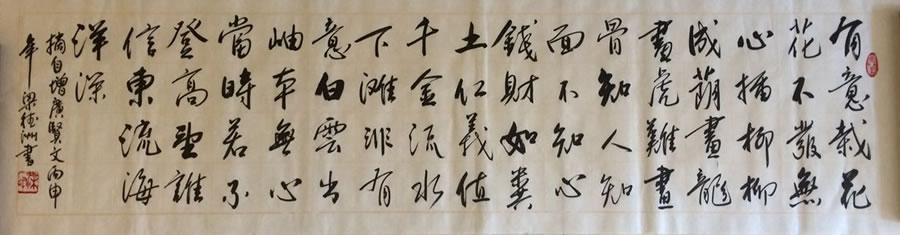 有意栽花
花不發無
心插柳柳
成蔭畫龍
畫虎難畫
骨知人知
面不知心
錢財如糞
土仁義值
千金流水
下灘非有
意白雲出
岫本無心
當時若不
登高望誰
信東流海
洋深
摘自增廣賢文丙申
年梁德洲書